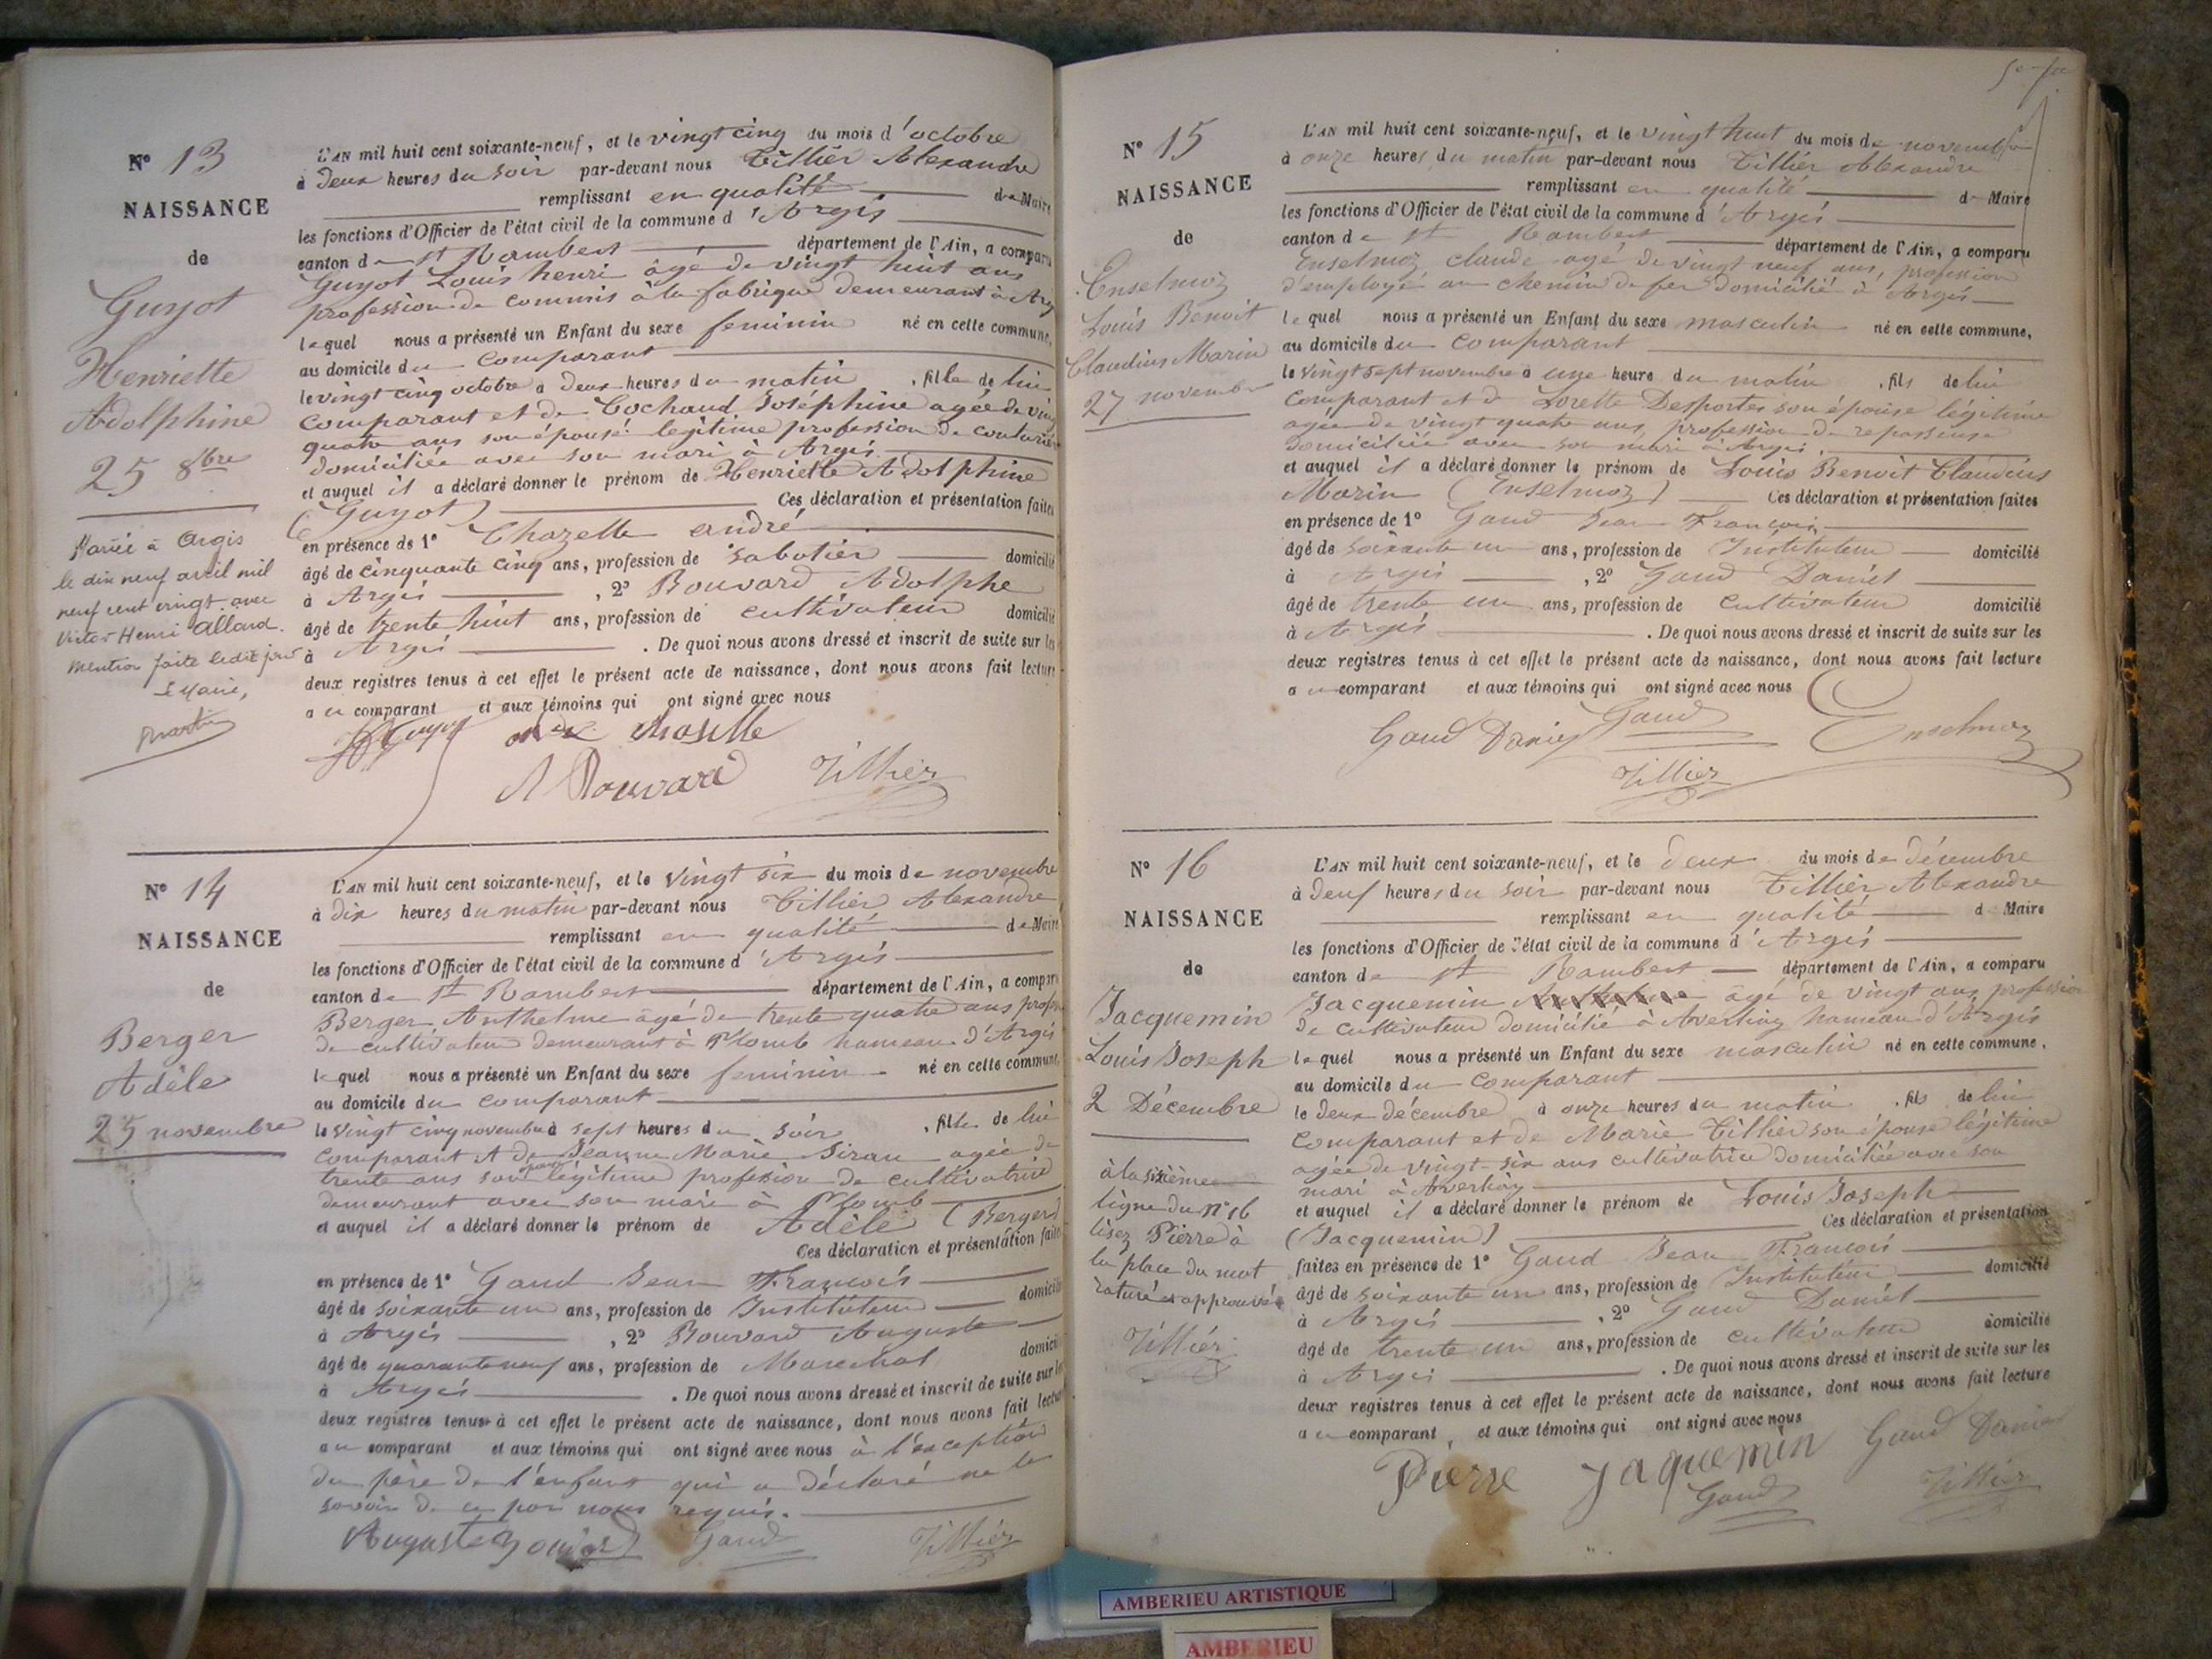 N° 13
NAISSANCE
de
Guyot
Henriette
Adolphine
25 8bre
Mariée à Argis
le dix neuf avril mil
neuf cent vingt avec
Victor Henri Allard.
mention faite ledit jour
Le Maire,
L'AN mil huit cent soixante-neuf, et le vingt cinq du mois d'octobre
à deux heures du soir par-devant nous Tillier Alexandre
remplissant en qualité de Maire
les fonctions d'Officier de l'état civil de la commune d'Argis
canton de St Rambert département de l'Ain, a comparu
Guyot Louis henri âgé de vingt huit ans
profession de commis à la fabrique demeurant à Argis
lequel nous a présenté un Enfant du sexe feminin né en cette commune,
au domicile du comparant
le vingt cinq octobre à deux heures du matin, fille de lui
comparant et de Cochand Joséphine agée de vingt
quatre ans son épouse légitime profession de couturière
domiciliée avec son mari à Argis
et auquel il a déclaré donner le prénom de Henriette Adolphine
(Guyot) Ces déclaration et présentation faites
en présence de 1° Chazelle andré
âgé de cinquante cinq ans, profession de sabotier domicilié
à Argis, 2° Bouvard Adolphe
âgé de trente huit ans, profession de cultivateur domicilié
à Argis. De quoi nous avons dressé et inscrit de suite sur les
deux registres tenus à cet effet le présent acte de naissance, dont nous avons fait lecture
au comparant et aux témoins qui ont signé avec nous
Guyot
A Bouvard Tillier
N° 14
NAISSANCE
de
Berger
Adèle
25 novembre
L'AN mil huit cent soixante-neuf, et le vingt six du mois de novembre
à dix heures du matin par-devant nous Tillier Alexandre
remplissant en qualité de Maire
les fonctions d'Officier de l'état civil de la commune d'Argis
canton de St Rambert département de l'Ain, a comparu
Berger Anthelme âgé de trente quatre ans profession
de cultivateur demeurant à Plomb hameau d'Argis
lequel nous a présenté un Enfant du sexe feminin né en cette commune,
au domicile du comparant
le vingt cinq novembre à sept heures du soir, fille de lui
comparant et de Jeanne Marie Siran agée de
trente ans son épouse légitime profession de cultivatrice
demeurant avec son mari à Plomb
et auquel il a déclaré donner le prénom de Adèle (Berger)
Ces déclaration et présentation faites
en présence de 1° Gaud Jean François
âgé de soixante un ans, profession de Instituteur domicilié
à Argis, 2° Bouvard Auguste
âgé de quarante neuf ans, profession de Marechal domicilié
à Argis. De quoi nous avons dressé et inscrit de suite sur les
deux registres tenus à cet effet le présent acte de naissance, dont nous avons fait lecture
au comparant et aux témoins qui ont signé avec nous à l'exception
du père de l'enfant qui a déclaré ne le
savoir de ce par nous requis.
Auguste Gaud Tillier
N° 15
NAISSANCE
de
Enselmoz
Louis Benoit
Claudius Marin
27 novembre
L'AN mil huit cent soixante-neuf, et le vingt huit du mois de novembre
à onze heures du matin par-devant nous Tillier Alexandre
remplissant en qualité de Maire
les fonctions d'Officier de l'état civil de la commune d'Argis
canton de St Rambert département de l'Ain, a comparu
Enselmoz claude agé de vingt neuf ans, profession
d'employé au chemin de fer domicilié à Argis
lequel nous a présenté un Enfant du sexe masculin né en cette commune,
au domicile du comparant
le vingt sept novembre à une heure du matin, fils de lui
comparant et de Lorette Desportes son épouse légitime
agée de vingt quatre ans, profession de repasseuse
domiciliée avec son mari à Argis
et auquel il a déclaré donner le prénom de Louis Benoit Claudius
Marin (Enselmoz) Ces déclaration et présentation faites
en présence de 1° Gaud Jean François
âgé de soixante un ans, profession de Instituteur domicilié
à Argis, 2° Gaud Daniel
âgé de trente un ans, profession de cultivateur domicilié
à Argis. De quoi nous avons dressé et inscrit de suite sur les
deux registres tenus à cet effet le présent acte de naissance, dont nous avons fait lecture
au comparant et aux témoins qui ont signé avec nous
Gaud Daniel Gaud Enselmoz
Tillier
N° 16
NAISSANCE
de
Jacquemin
Louis Joseph
2 Décembre
à la sixième
ligne du n° 16
lisez Pierre à
la place du mot
raturé et approuvé
Tillier
L'AN mil huit cent soixante-neuf, et le deux du mois de décembre
à deux heures du soir par-devant nous Tillier Alexandre
remplissant en qualité de Maire
les fonctions d'Officier de l'état civil de la commune d'Argis
canton de St Rambert département de l'Ain, a comparu
Jacquemin âgé de vingt ans, profession
de cultivateur domicilié à Averliaz hameau d'Argis
lequel nous a présenté un Enfant du sexe masculin né en cette commune,
au domicile du comparant
le deux décembre à onze heures du matin, fils de lui
comparant et de Marie Tillier son épouse légitime
agée de vingt-six ans cultivatrice domiciliée avec son
mari à Averliaz
et auquel il a déclaré donner le prénom de Louis Joseph
(Jacquemin) Ces déclaration et présentation
faites en présence de 1° Gaud Jean François
âgé de soixante un ans, profession de Instituteur domicilié
à Argis, 2° Gaud Daniel
âgé de trente un ans, profession de cultivateur domicilié
à Argis. De quoi nous avons dressé et inscrit de suite sur les
deux registres tenus à cet effet le présent acte de naissance, dont nous avons fait lecture
au comparant, et aux témoins qui ont signé avec nous
Pierre Jaquemin Gaud Daniel
Gaud Tillier
AMBERIEU ARTISTIQUE
AMBERIEU